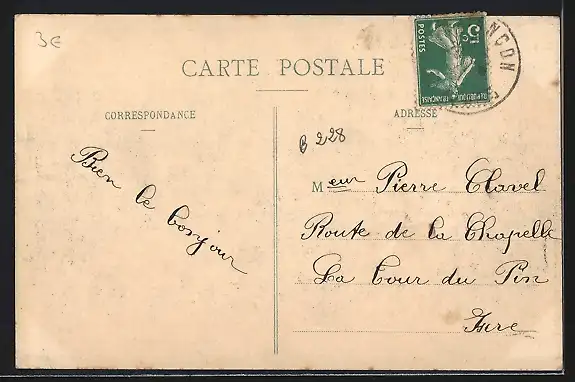 3€
CARTE POSTALE
CORRESPONDANCE
ADRESSE
5c
POSTES
REPUBLIQUE FRANÇAISE
NÇON
B 228
Bien le bonjour
Meur Pierre Clavel
Route de la Chapelle
La Tour du Pin
Isère